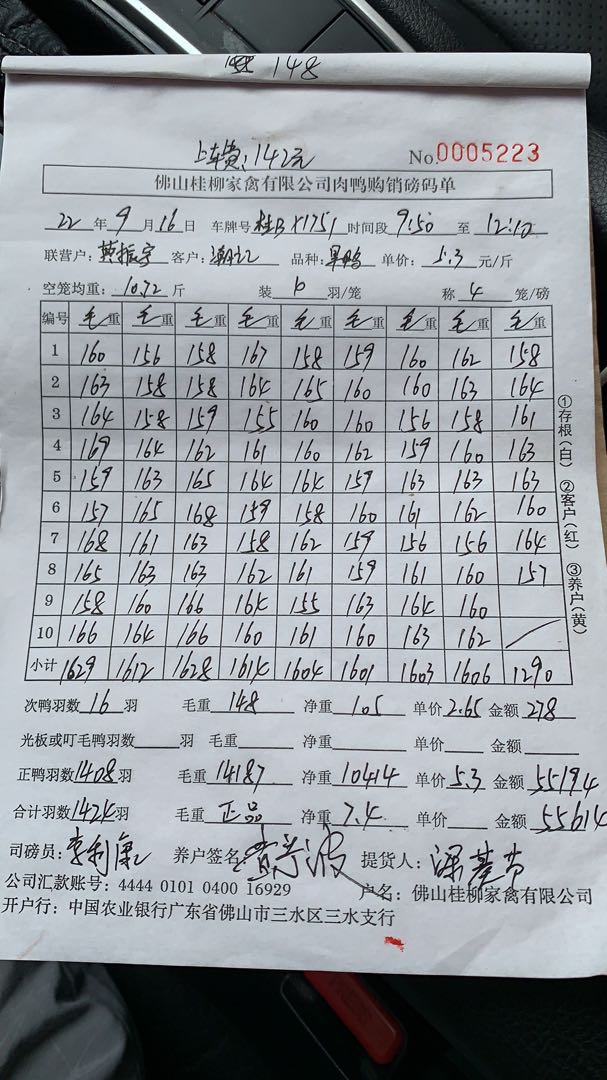 148
上车费:142元
No.0005223
佛山桂柳家禽有限公司肉鸭购销磅码单
22年9月16日 车牌号桂BX1751 时间段9:50至12:10
联营户:黄振宇 客户: 品种:旱鸭 单价:5.3元/斤
空笼均重:10.72斤 装10羽/笼 称4笼/磅
编号 毛重 毛重 毛重 毛重 毛重 毛重 毛重 毛重 毛重
1 160 156 158 167 158 159 160 162 158
2 163 158 158 164 165 160 160 163 164
3 164 158 159 155 160 160 156 158 161
4 169 164 162 161 160 162 159 160 163
5 159 163 165 164 164 159 163 163 163
6 157 165 168 159 158 160 161 162 160
7 168 161 163 158 162 159 156 156 164
8 165 163 163 162 161 159 161 160 157
9 158 160 166 164 155 163 164 160
10 166 164 166 160 161 160 163 162 /
小计 1629 1612 1628 1614 1604 1601 1603 1606 1290
①存根(白) ②客户(红) ③养户(黄)
次鸭羽数16羽 毛重148 净重105 单价2.65 金额278
光板或叮毛鸭羽数 羽 毛重 净重 单价 金额
正鸭羽数1408羽 毛重14187 净重10414 单价5.3 金额55194
合计羽数1424羽 毛重正品 净重7.4 单价 金额55614
司磅员:李利康 养户签名: 提货人:
公司汇款账号:4444 0101 0400 16929 户名:佛山桂柳家禽有限公司
开户行:中国农业银行广东省佛山市三水区三水支行